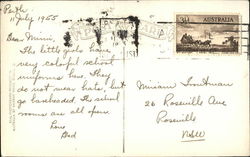 Perth
11 July 1955
Dear Mimi,
The little girls have
very colorful school
uniforms here. They
do not wear hats, but
go bareheaded. The school
rooms are all open.
Love
Dad
AUSTRALIA
Miriam Troutman
26 Roseville Ave
Roseville
NSW